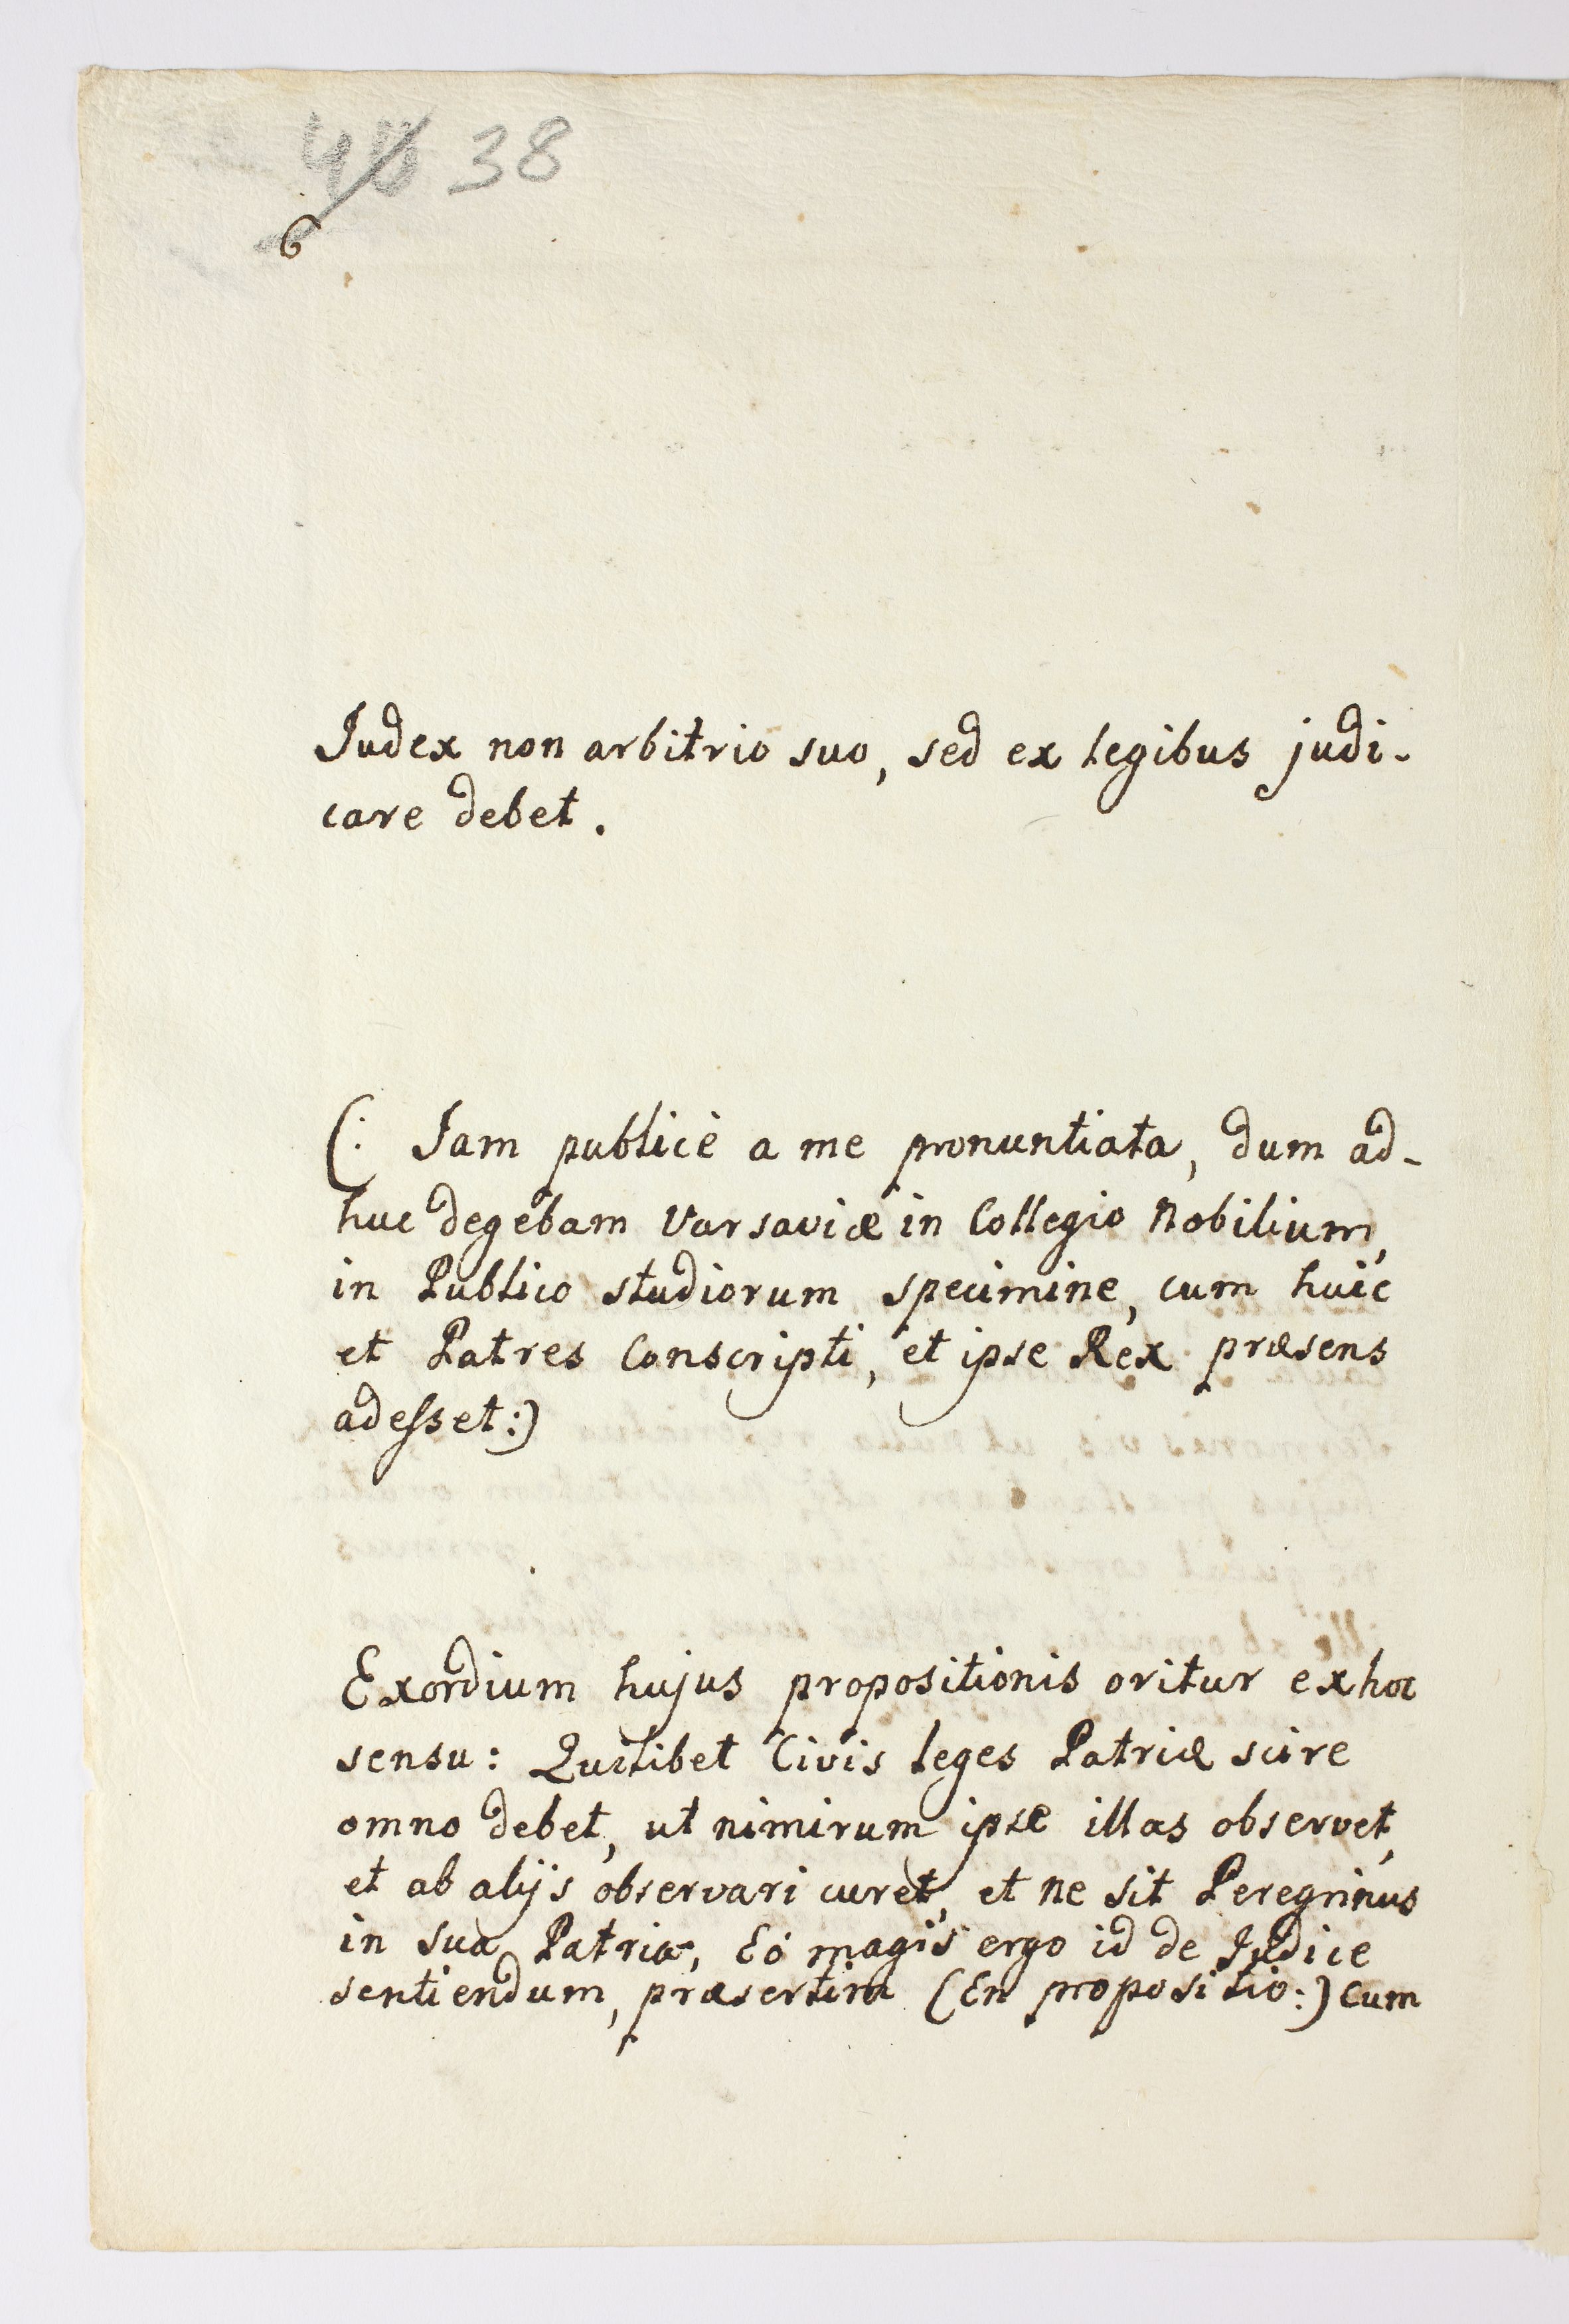 38
6
Judex non arbitrio suo, sed ex legibus judi-
care debet.
(: Jam publicè a me pronuntiata, dum ad-
huc degebam Varsaviæ in Collegio Nobilium,
in Publico studiorum specimine, cum huic
et Patres Conscripti, et ipse Rex præsens
adesset:)
Exordium hujus propositionis oritur ex hoc
sensu: Quilibet Civis leges Patriæ scire
omno debet, ut nimirum ipse illas observet,
et ab alijs observari curet, et ne sit Peregrinus
in sua Patria, Eó magis ergo id de Judice
sentiendum, præsertim (En propositio:) cum